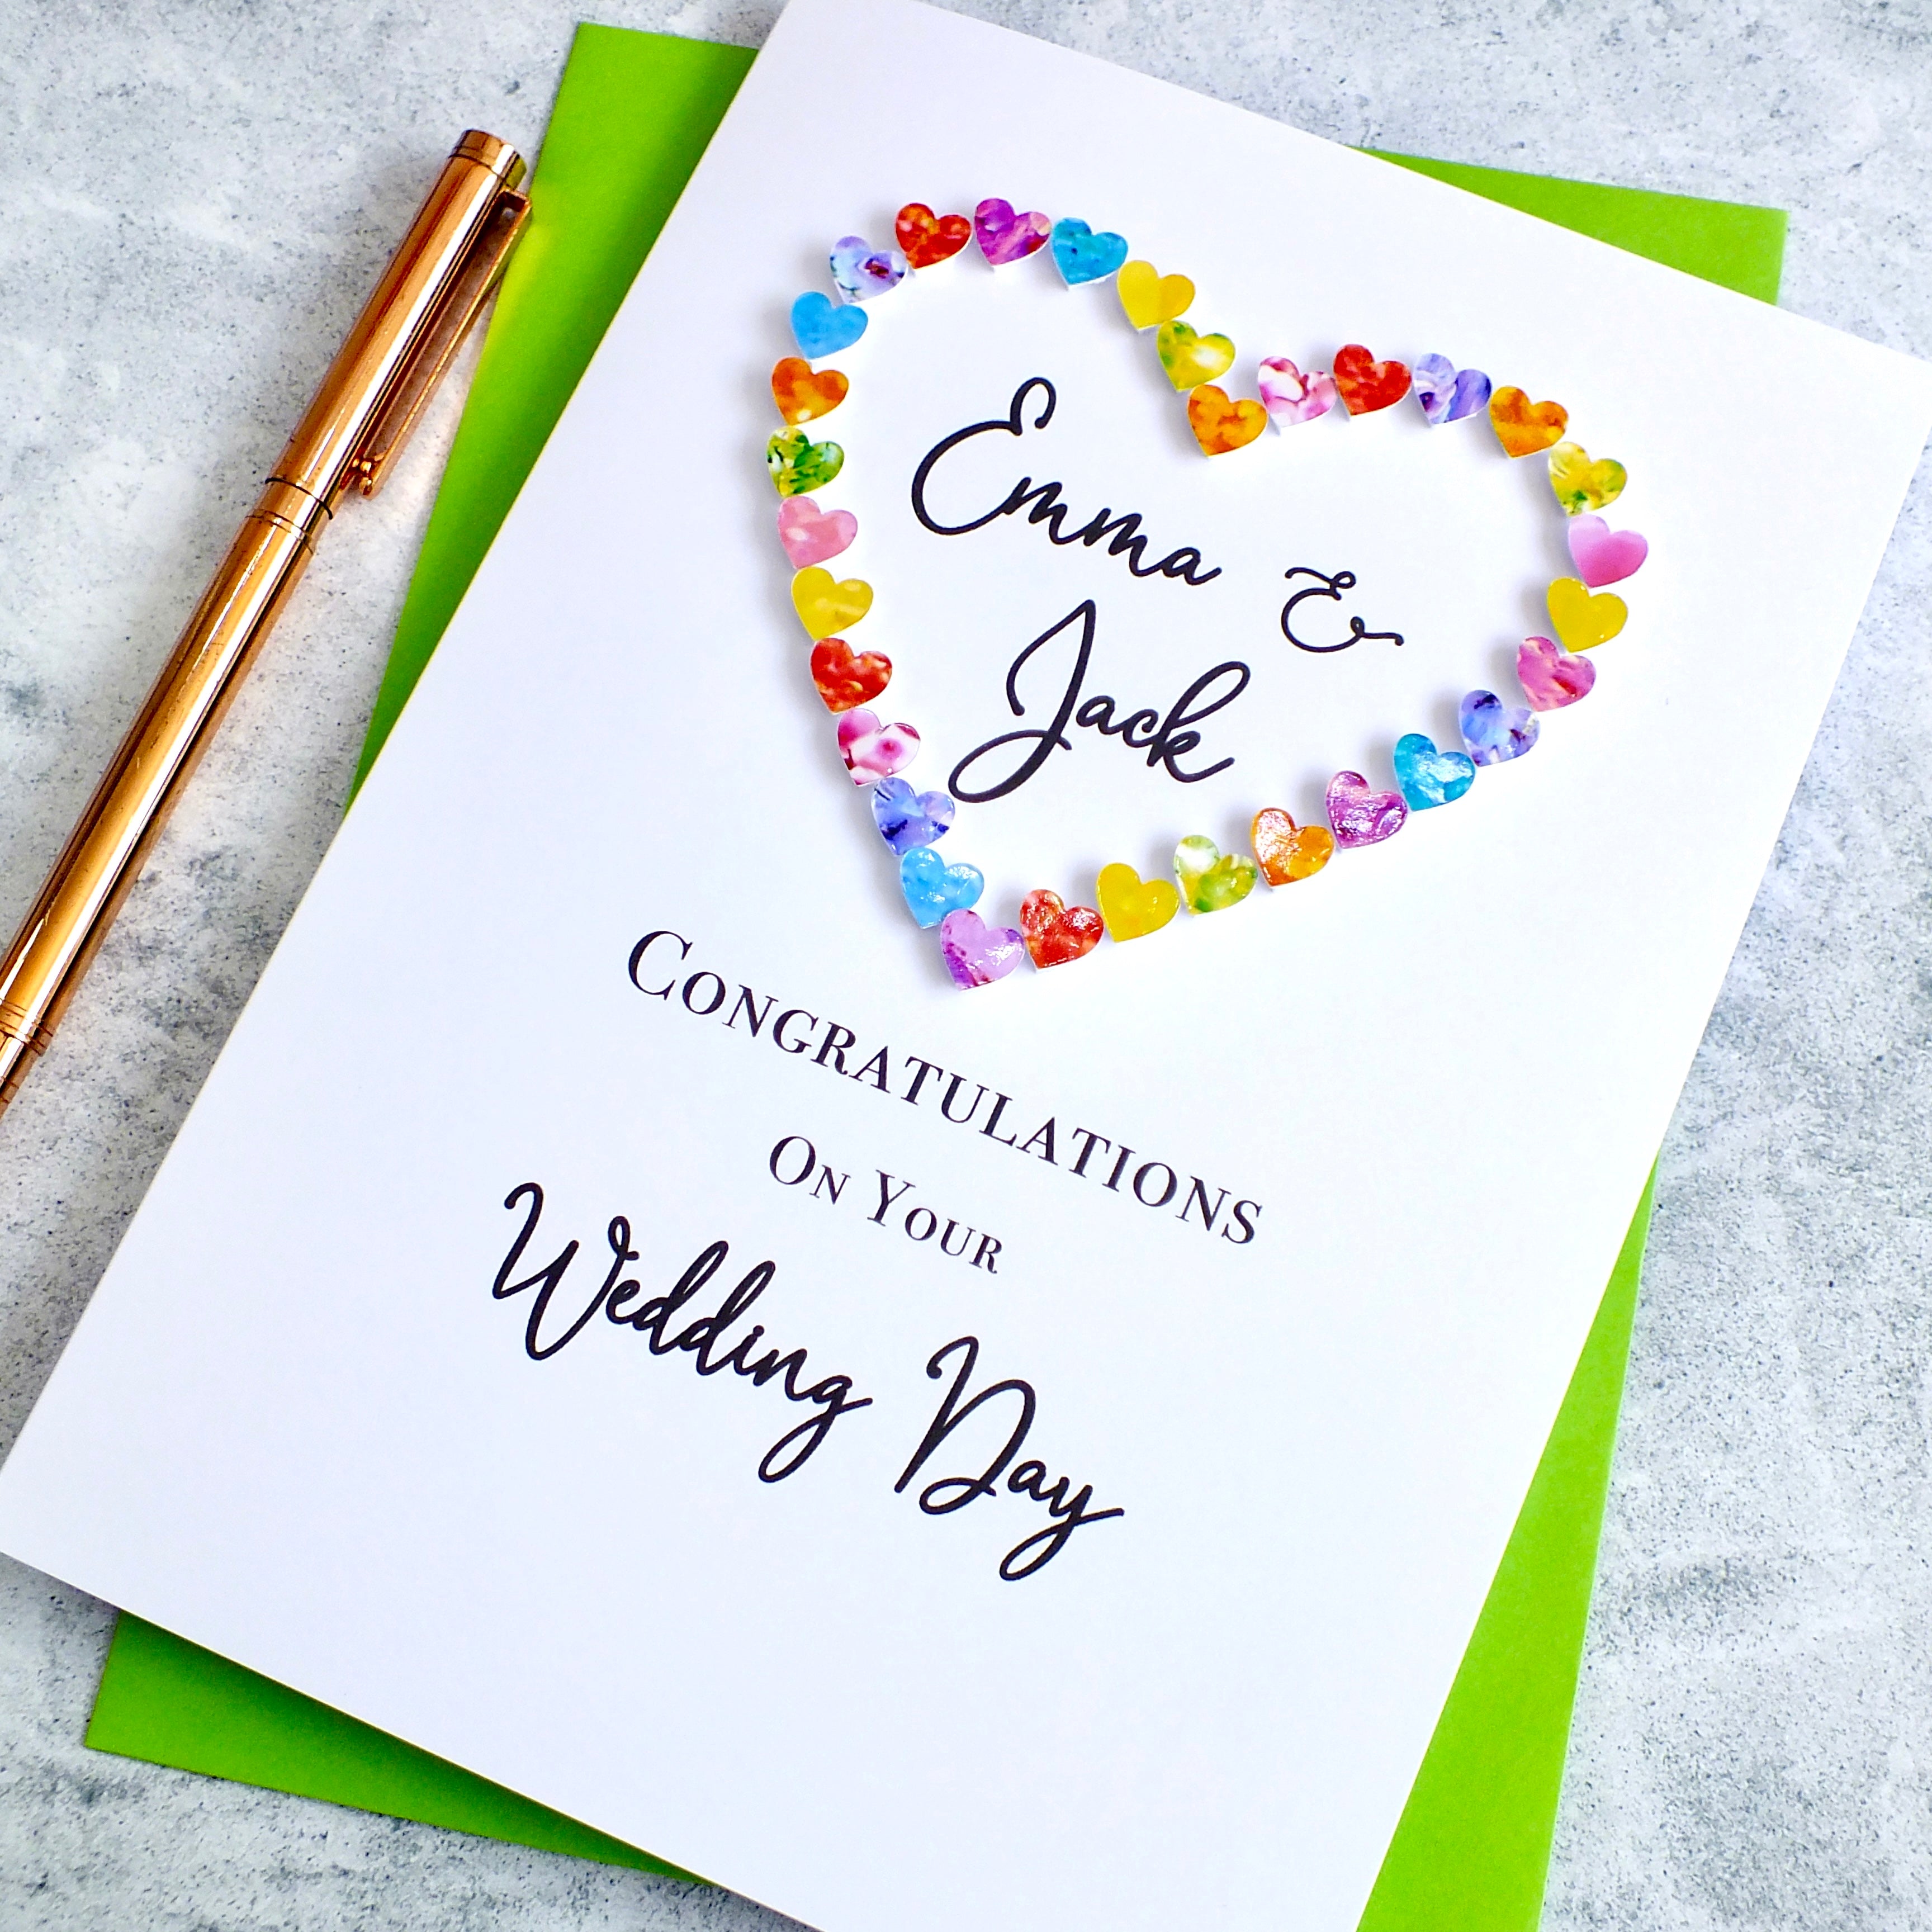 Emma &
Jack
CONGRATULATIONS
ON YOUR
Wedding Day